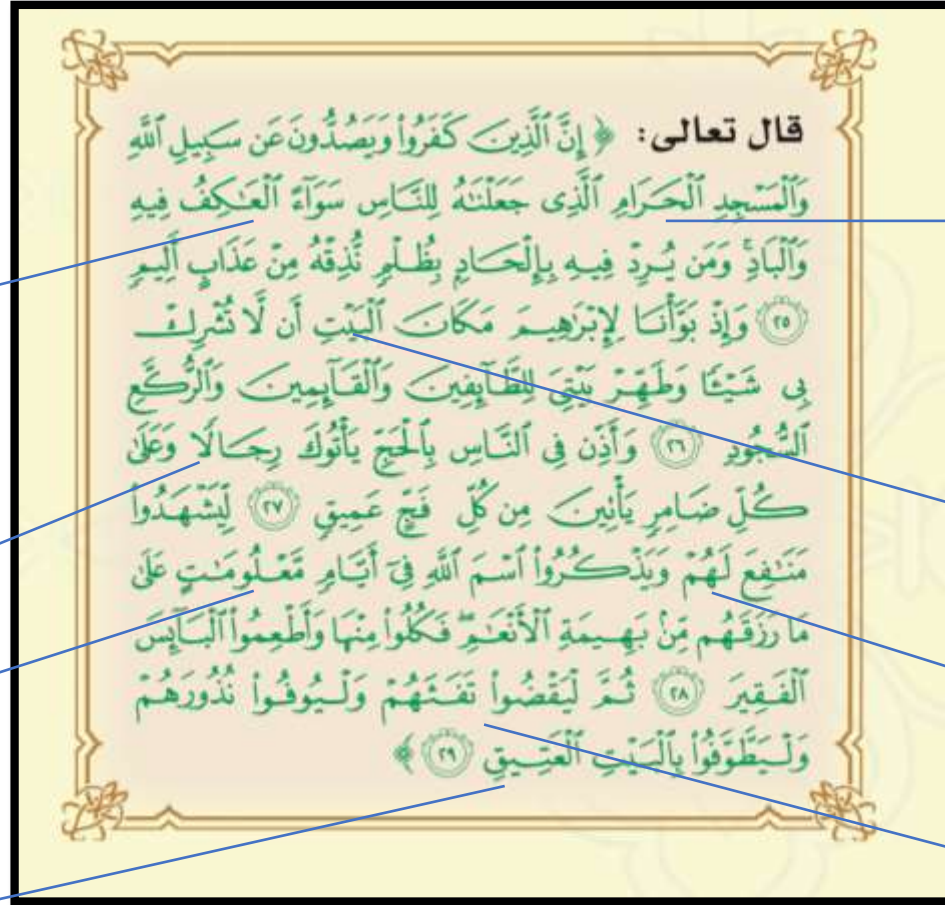 قال تعالى: ﴿ إِنَّ ٱلَّذِينَ كَفَرُوا۟ وَيَصُدُّونَ عَن سَبِيلِ ٱللَّهِ
وَٱلْمَسْجِدِ ٱلْحَرَامِ ٱلَّذِى جَعَلْنَٰهُ لِلنَّاسِ سَوَآءً ٱلْعَٰكِفُ فِيهِ
وَٱلْبَادِ ۚ وَمَن يُرِدْ فِيهِ بِإِلْحَادٍۭ بِظُلْمٍ نُّذِقْهُ مِنْ عَذَابٍ أَلِيمٍ
﴿٢٥﴾ وَإِذْ بَوَّأْنَا لِإِبْرَٰهِيمَ مَكَانَ ٱلْبَيْتِ أَن لَّا تُشْرِكْ
بِى شَيْـًٔا وَطَهِّرْ بَيْتِىَ لِلطَّآئِفِينَ وَٱلْقَآئِمِينَ وَٱلرُّكَّعِ
ٱلسُّجُودِ ﴿٢٦﴾ وَأَذِّن فِى ٱلنَّاسِ بِٱلْحَجِّ يَأْتُوكَ رِجَالًا وَعَلَىٰ
كُلِّ ضَامِرٍ يَأْتِينَ مِن كُلِّ فَجٍّ عَمِيقٍ ﴿٢٧﴾ لِّيَشْهَدُوا۟
مَنَٰفِعَ لَهُمْ وَيَذْكُرُوا۟ ٱسْمَ ٱللَّهِ فِىٓ أَيَّامٍ مَّعْلُومَٰتٍ عَلَىٰ
مَا رَزَقَهُم مِّنۢ بَهِيمَةِ ٱلْأَنْعَٰمِ ۖ فَكُلُوا۟ مِنْهَا وَأَطْعِمُوا۟ ٱلْبَآئِسَ
ٱلْفَقِيرَ ﴿٢٨﴾ ثُمَّ لْيَقْضُوا۟ تَفَثَهُمْ وَلْيُوفُوا۟ نُذُورَهُمْ
وَلْيَطَّوَّفُوا۟ بِٱلْبَيْتِ ٱلْعَتِيقِ ﴿٢٩﴾ ﴾